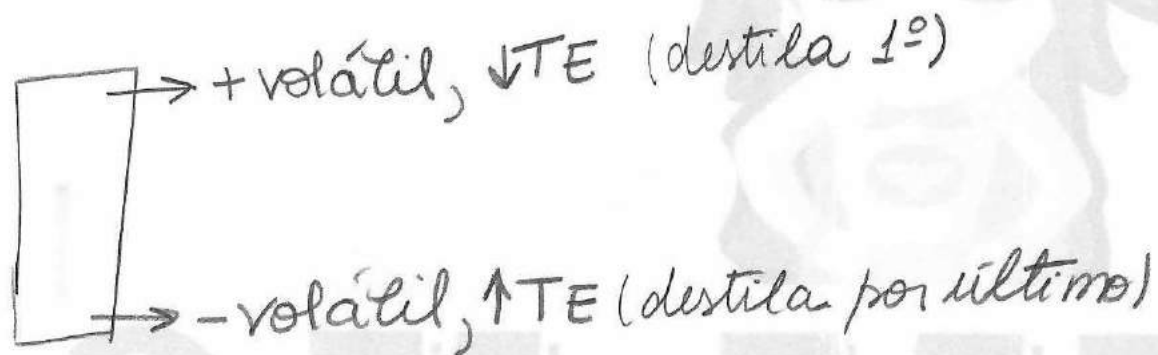 → + volátil, ↓TE (destila 1º)
→ - volátil, ↑TE (destila por último)